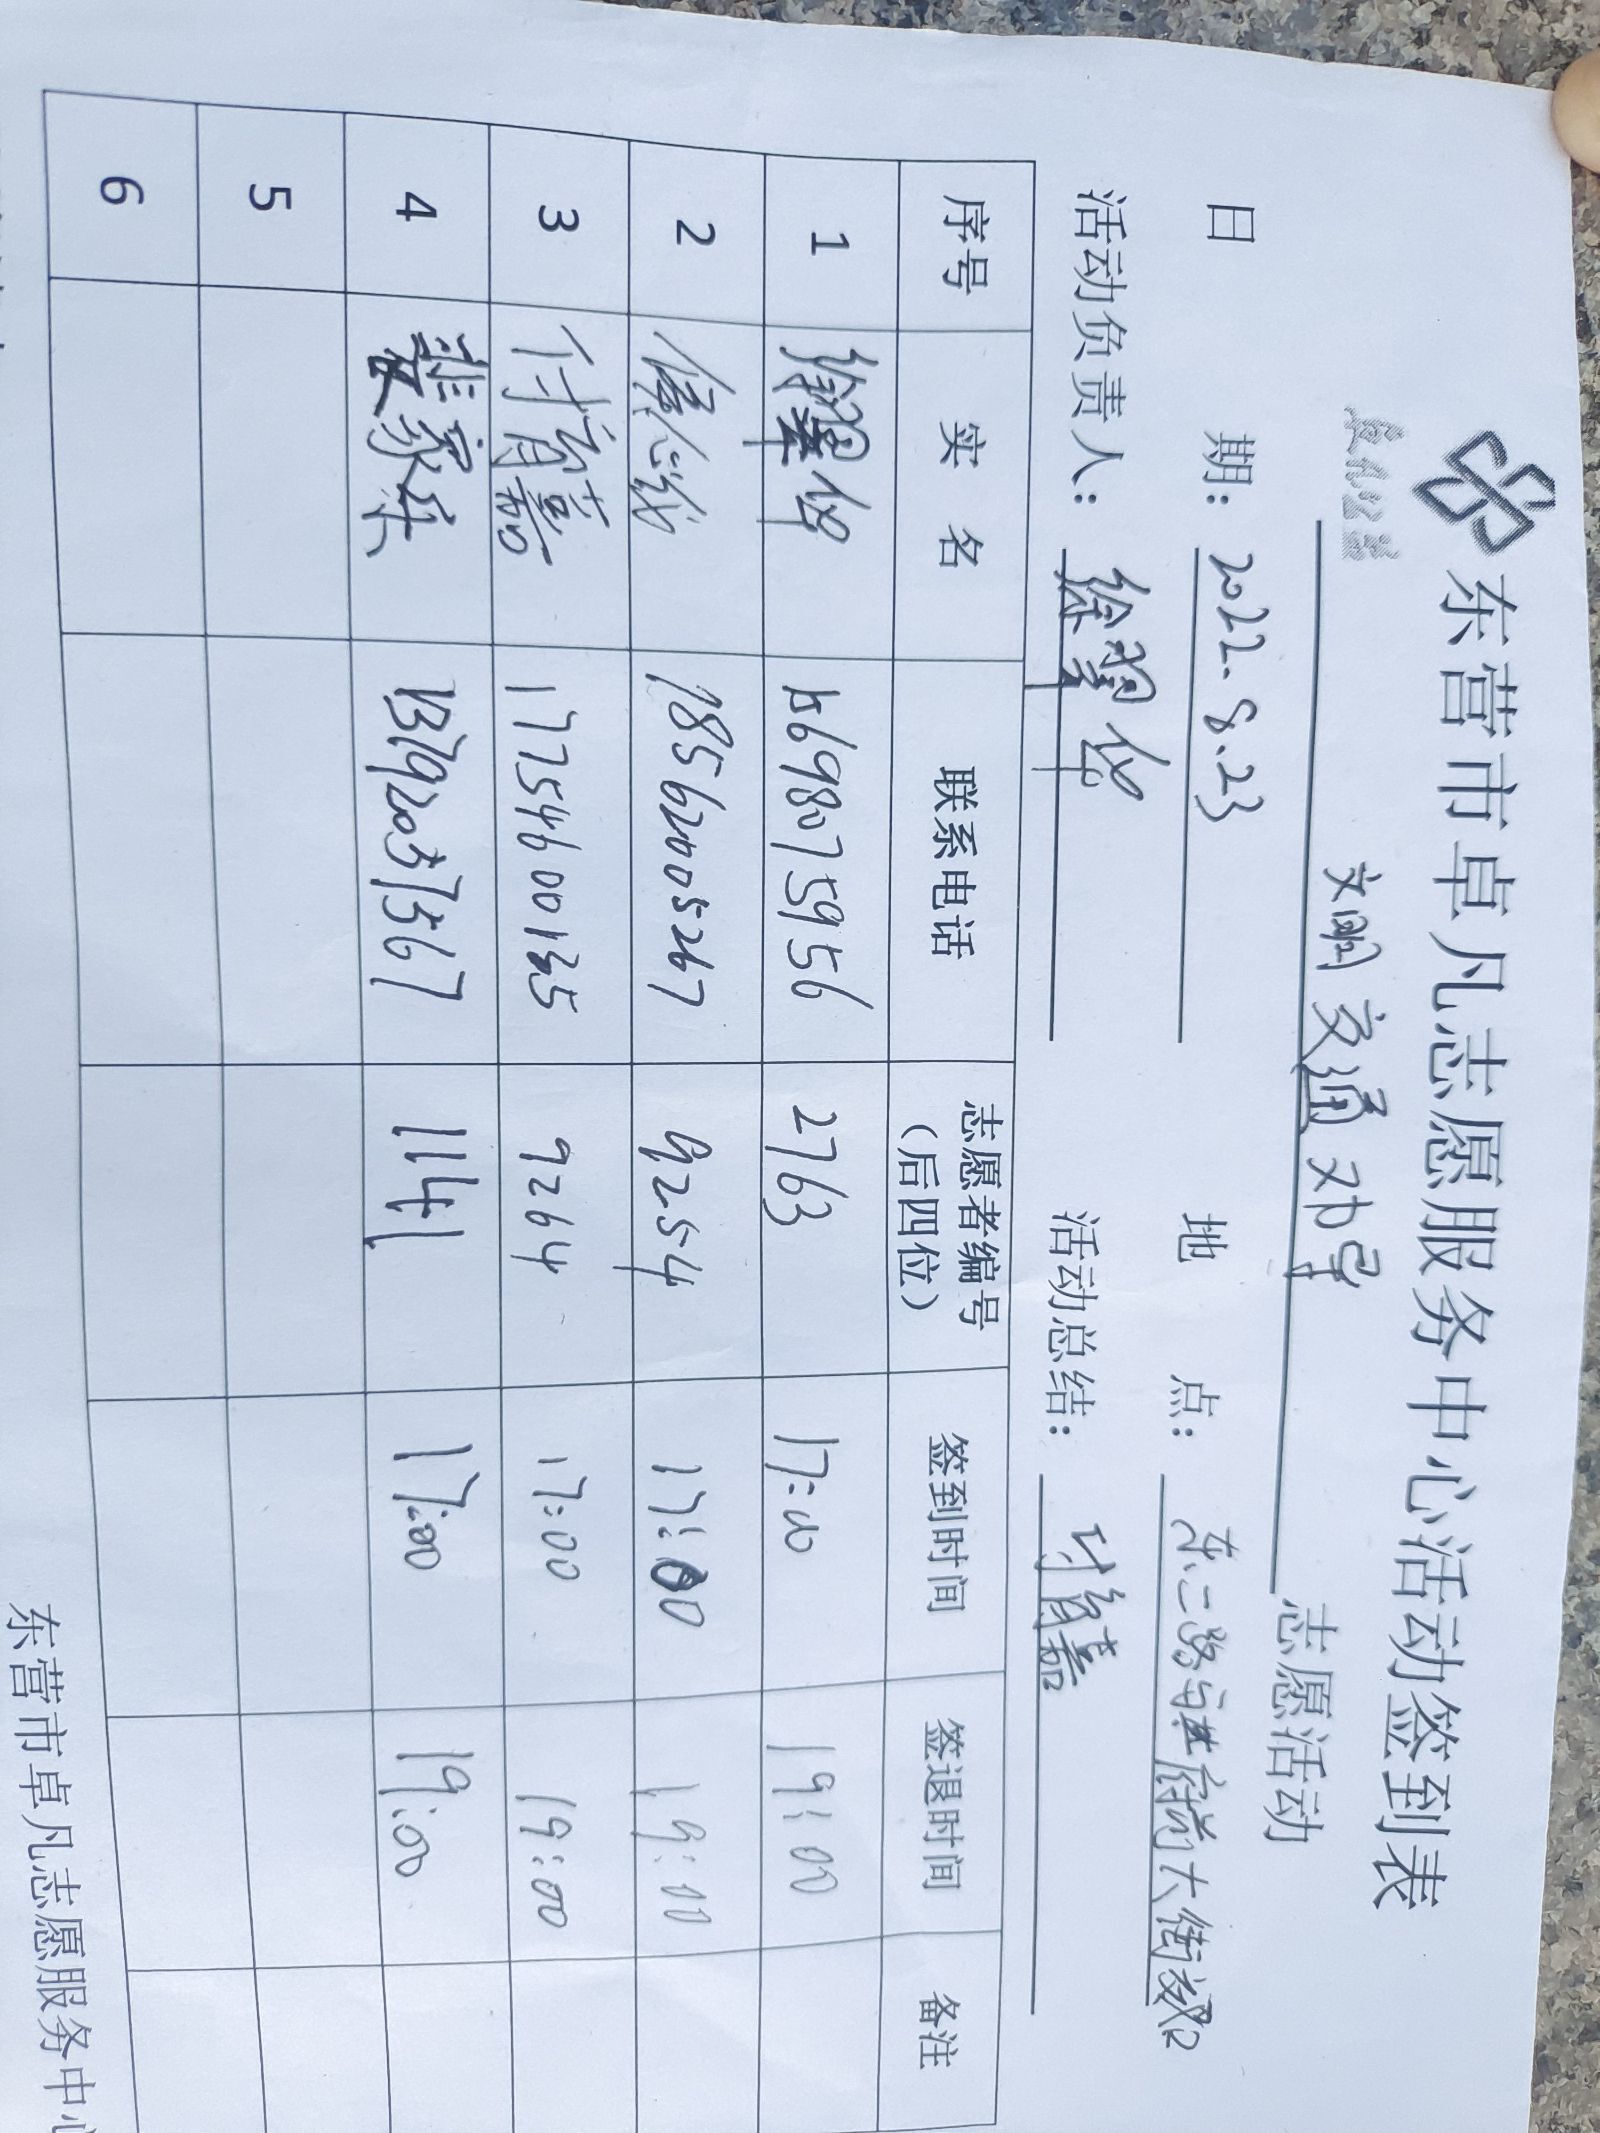 东营市卓凡志愿服务中心活动签到表
文明交通劝导 志愿活动
日 期: 2022.8.23 地 点: 东二路与府前大街路口
活动负责人: 徐翠 活动总结: 付育嘉
序号 实 名 联系电话 志愿者编号(后四位) 签到时间 签退时间 备注
1 徐翠 15698075956 2763 17:00 19:00
2 18562005267 9254 17:00 19:00
3 付育嘉 17754600135 9264 17:00 19:00
4 裴家 13792037567 1141 17:00 19:00
5
6
东营市卓凡志愿服务中心